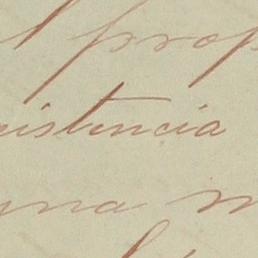 l prop
istencia
una m